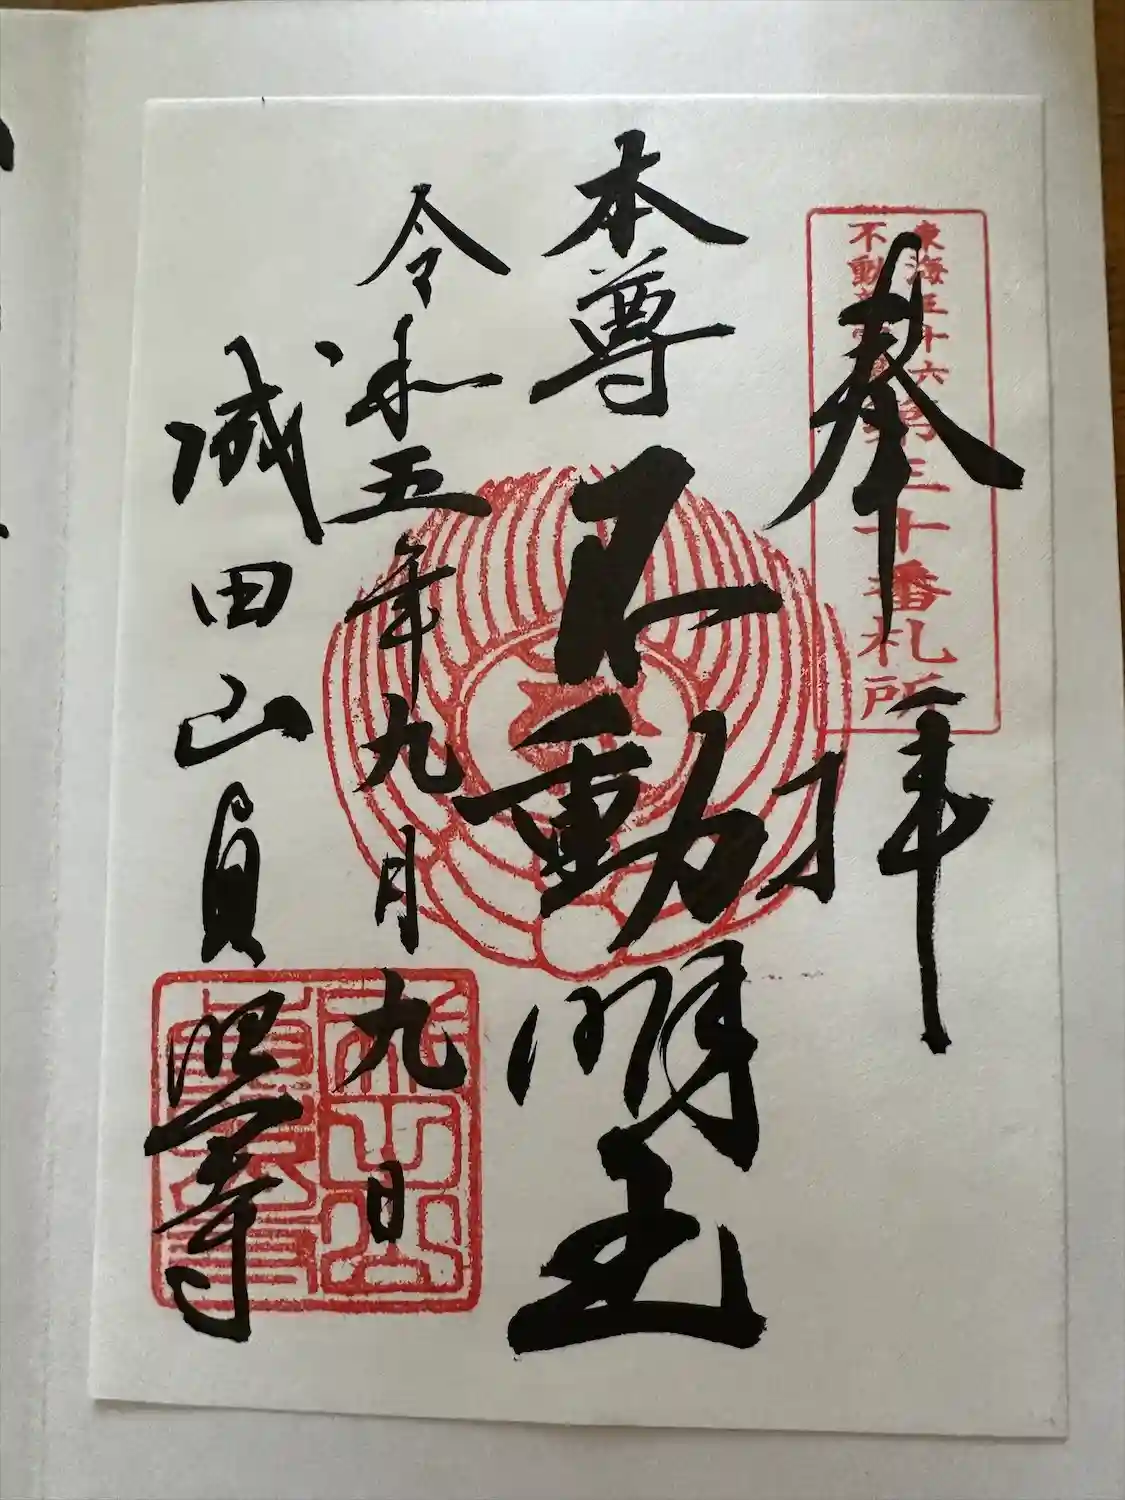 奉拝
東海三十六
不動尊霊場
第三十番札所
本尊
不動明王
令和五年九月九日
成田山貞照寺